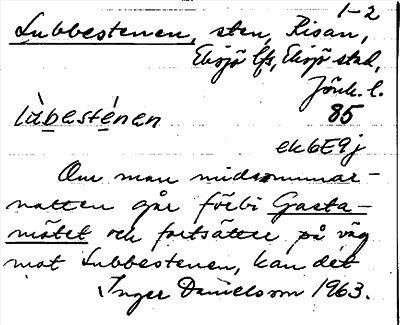 1-2
Lubbestenen, sten, Risan,
Eksjö lfs, Eksjö stad,
Jönk. l.
lùbesténen 85
ek6E9j
Om man midsommar-
natten går förbi Gasta-
mötet och fortsätter på väg
mot Lubbestenen, kan det
Inger Danielsson 1963.